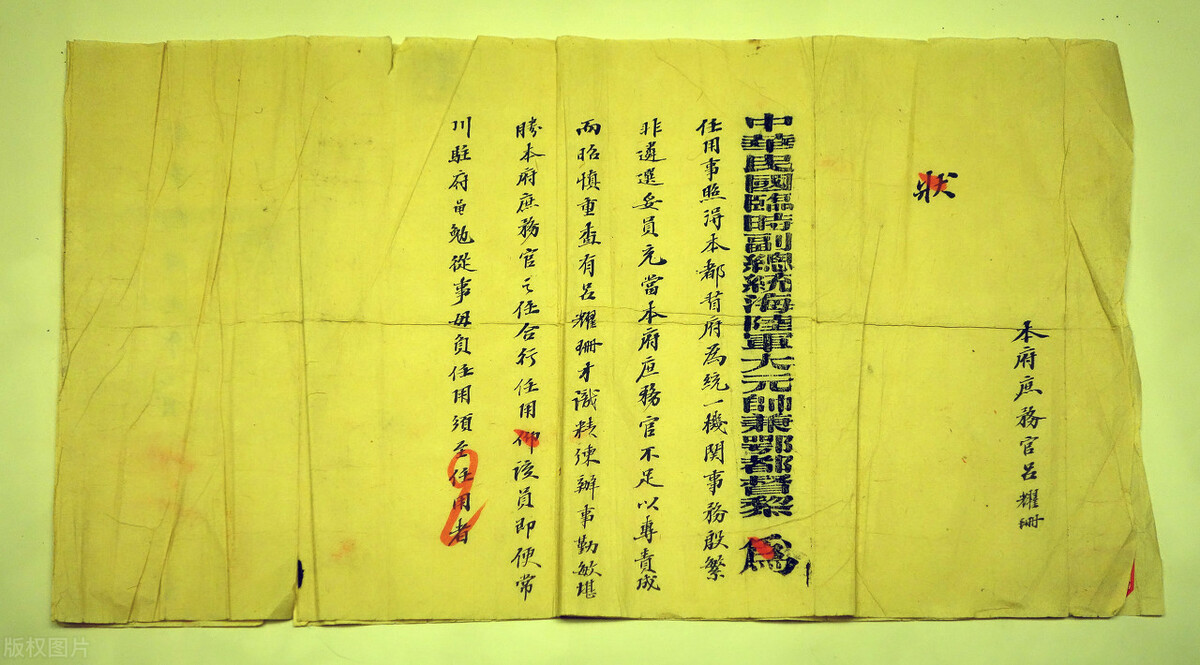 本府庶務官呂耀珊
狀
中華民國臨時副總統海陸軍大元帥兼鄂都督黎 為
任用事照得本都督府為統一機関事務殷繁
非遴選妥員充當本府庶務官不足以專責成
而昭慎重查有呂耀珊才識精練辦事勤敏堪
勝本府庶務官之任合行任用仰該員即便常
川駐府黽勉從事毋負任用須至任用者
版权图片